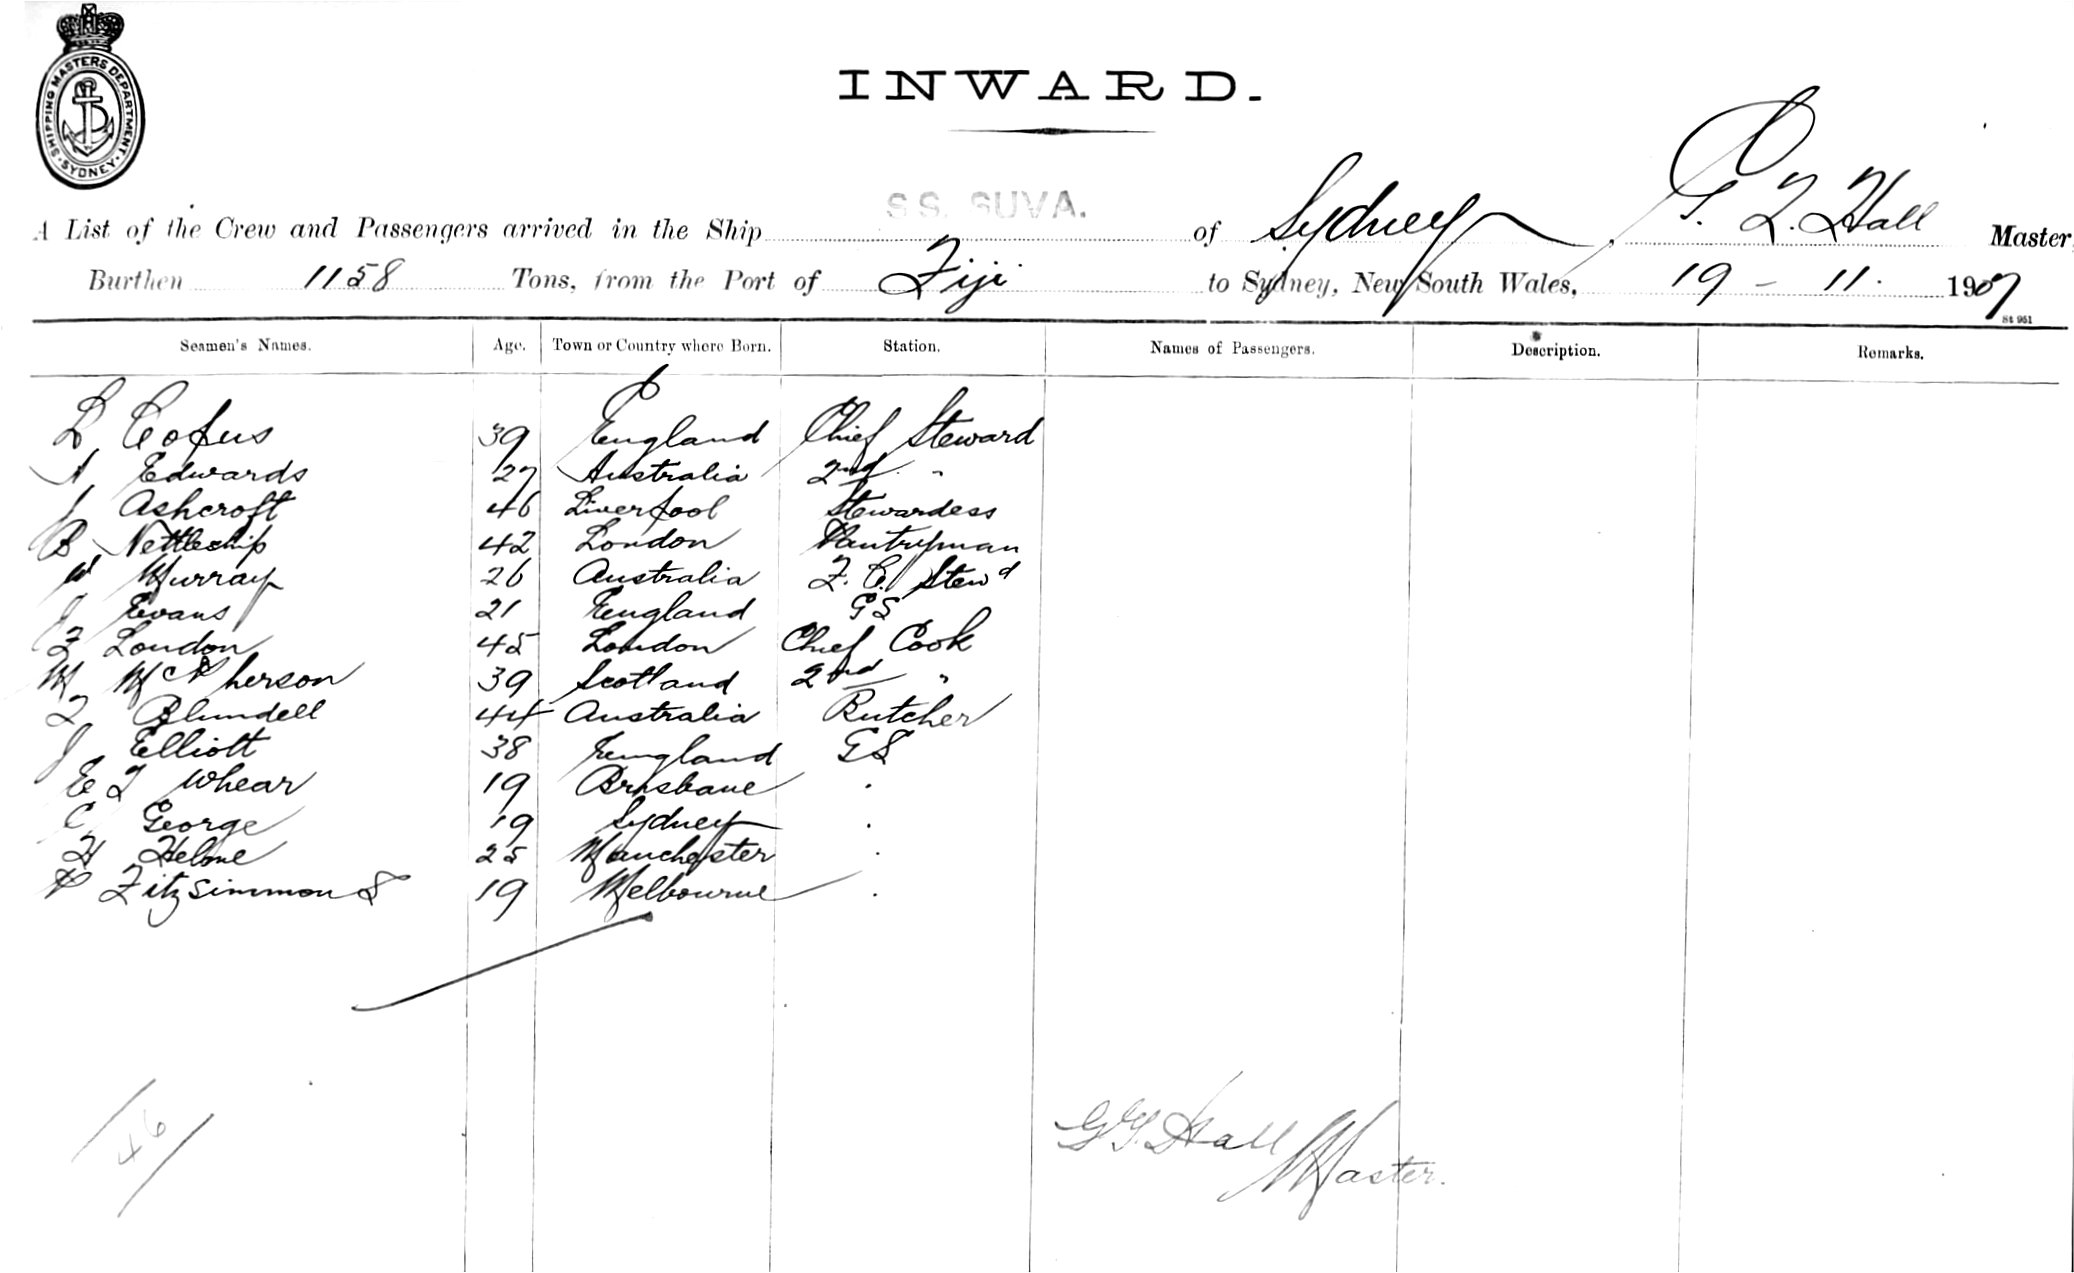 SHIPPING MASTERS DEPARTMENT · SYDNEY ·
INWARD.
S.S. SUVA.
A List of the Crew and Passengers arrived in the Ship of Sydney, G. T. Hall Master
Burthen 1158 Tons, from the Port of Fiji to Sydney, New South Wales, 19 - 11. 1907
St 951
Seamen's Names. Age. Town or Country where Born. Station. Names of Passengers. Description. Remarks.
L Cofus 39 England Chief Steward
A Edwards 27 Australia 2nd "
J Ashcroft 46 Liverpool Stewardess
B Nettleship 42 London Pantryman
W Murray 26 Australia F. C. Stewd
J Evans 21 England GS
F London 45 London Chief Cook
W McPherson 39 Scotland 2nd "
F Blundell 44 Australia Butcher
J Elliott 38 England GS
E J Whear 19 Brisbane "
C George 19 Sydney "
H Helme 25 Manchester "
P Fitzsimmons 19 Melbourne "
46
G T. Hall
Master.